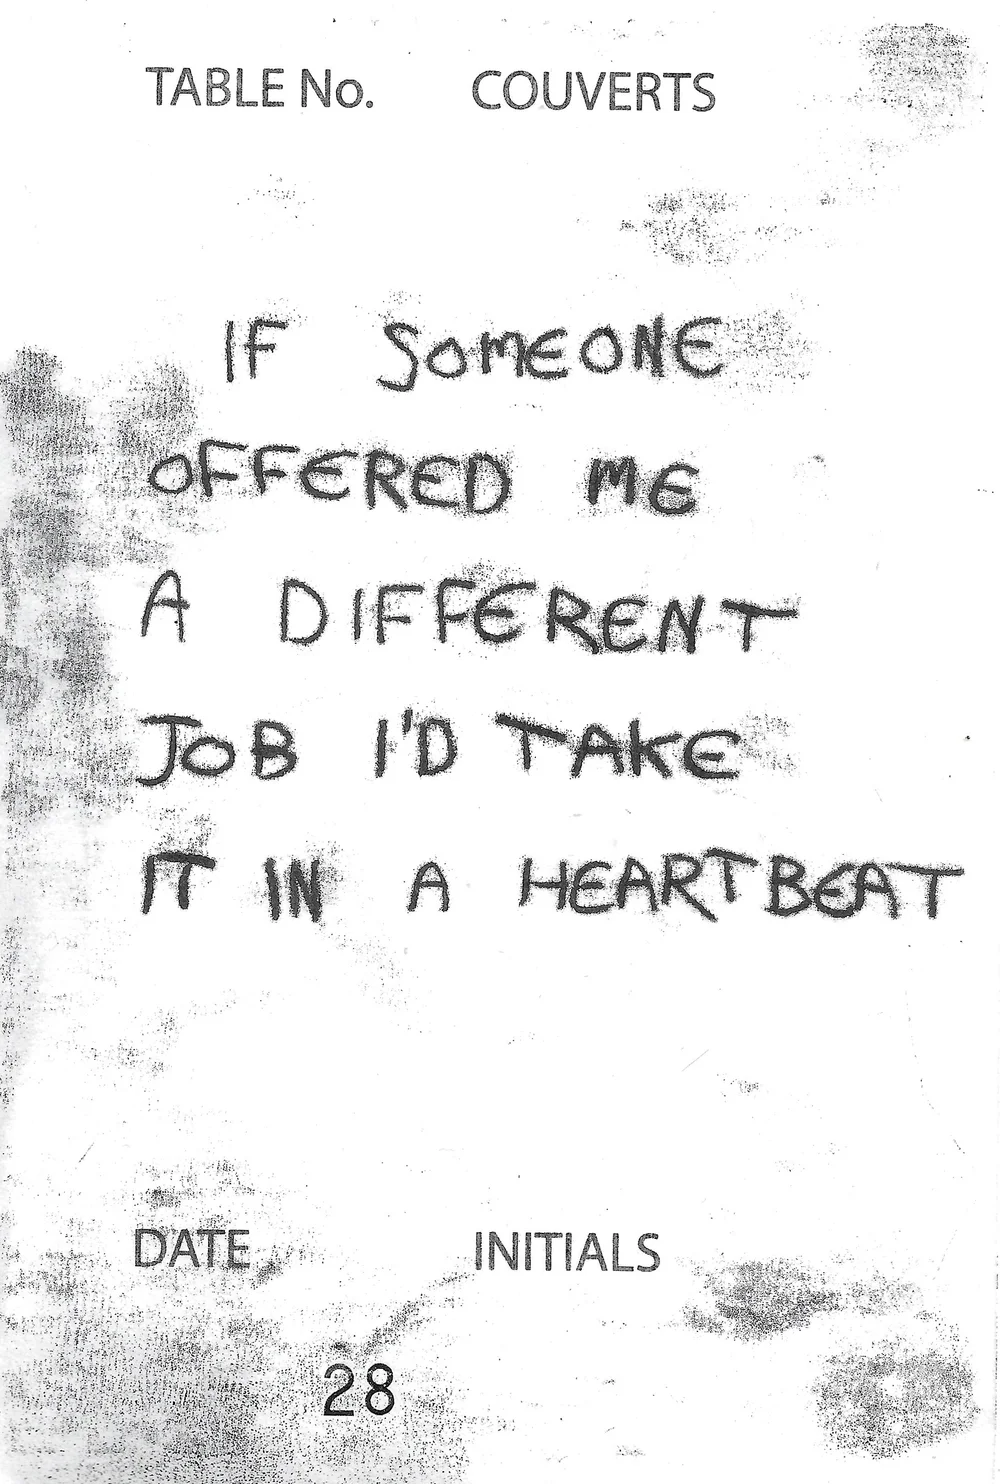 TABLE No. COUVERTS
IF SOMEONE
OFFERED ME
A DIFFERENT
JOB I'D TAKE
IT IN A HEARTBEAT
DATE INITIALS
28